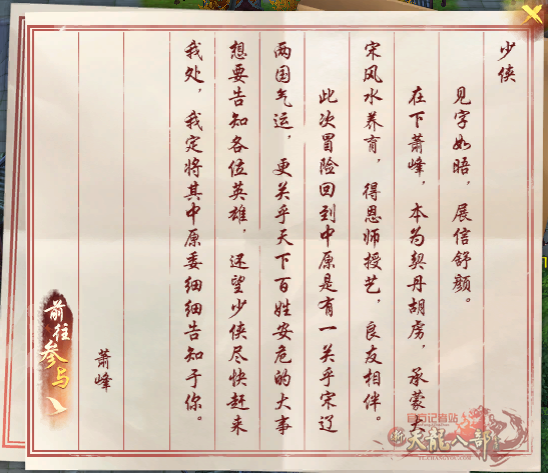 少侠
见字如晤，展信舒颜。
在下萧峰，本为契丹胡虏，承蒙大
宋风水养育，得恩师授艺，良友相伴。
此次冒险回到中原是有一关乎宋辽
两国气运，更关乎天下百姓安危的大事
想要告知各位英雄，还望少侠尽快赶来
我处，我定将其中原委细细告知于你。
萧峰
前往参与
官方记者站
新天龍八部